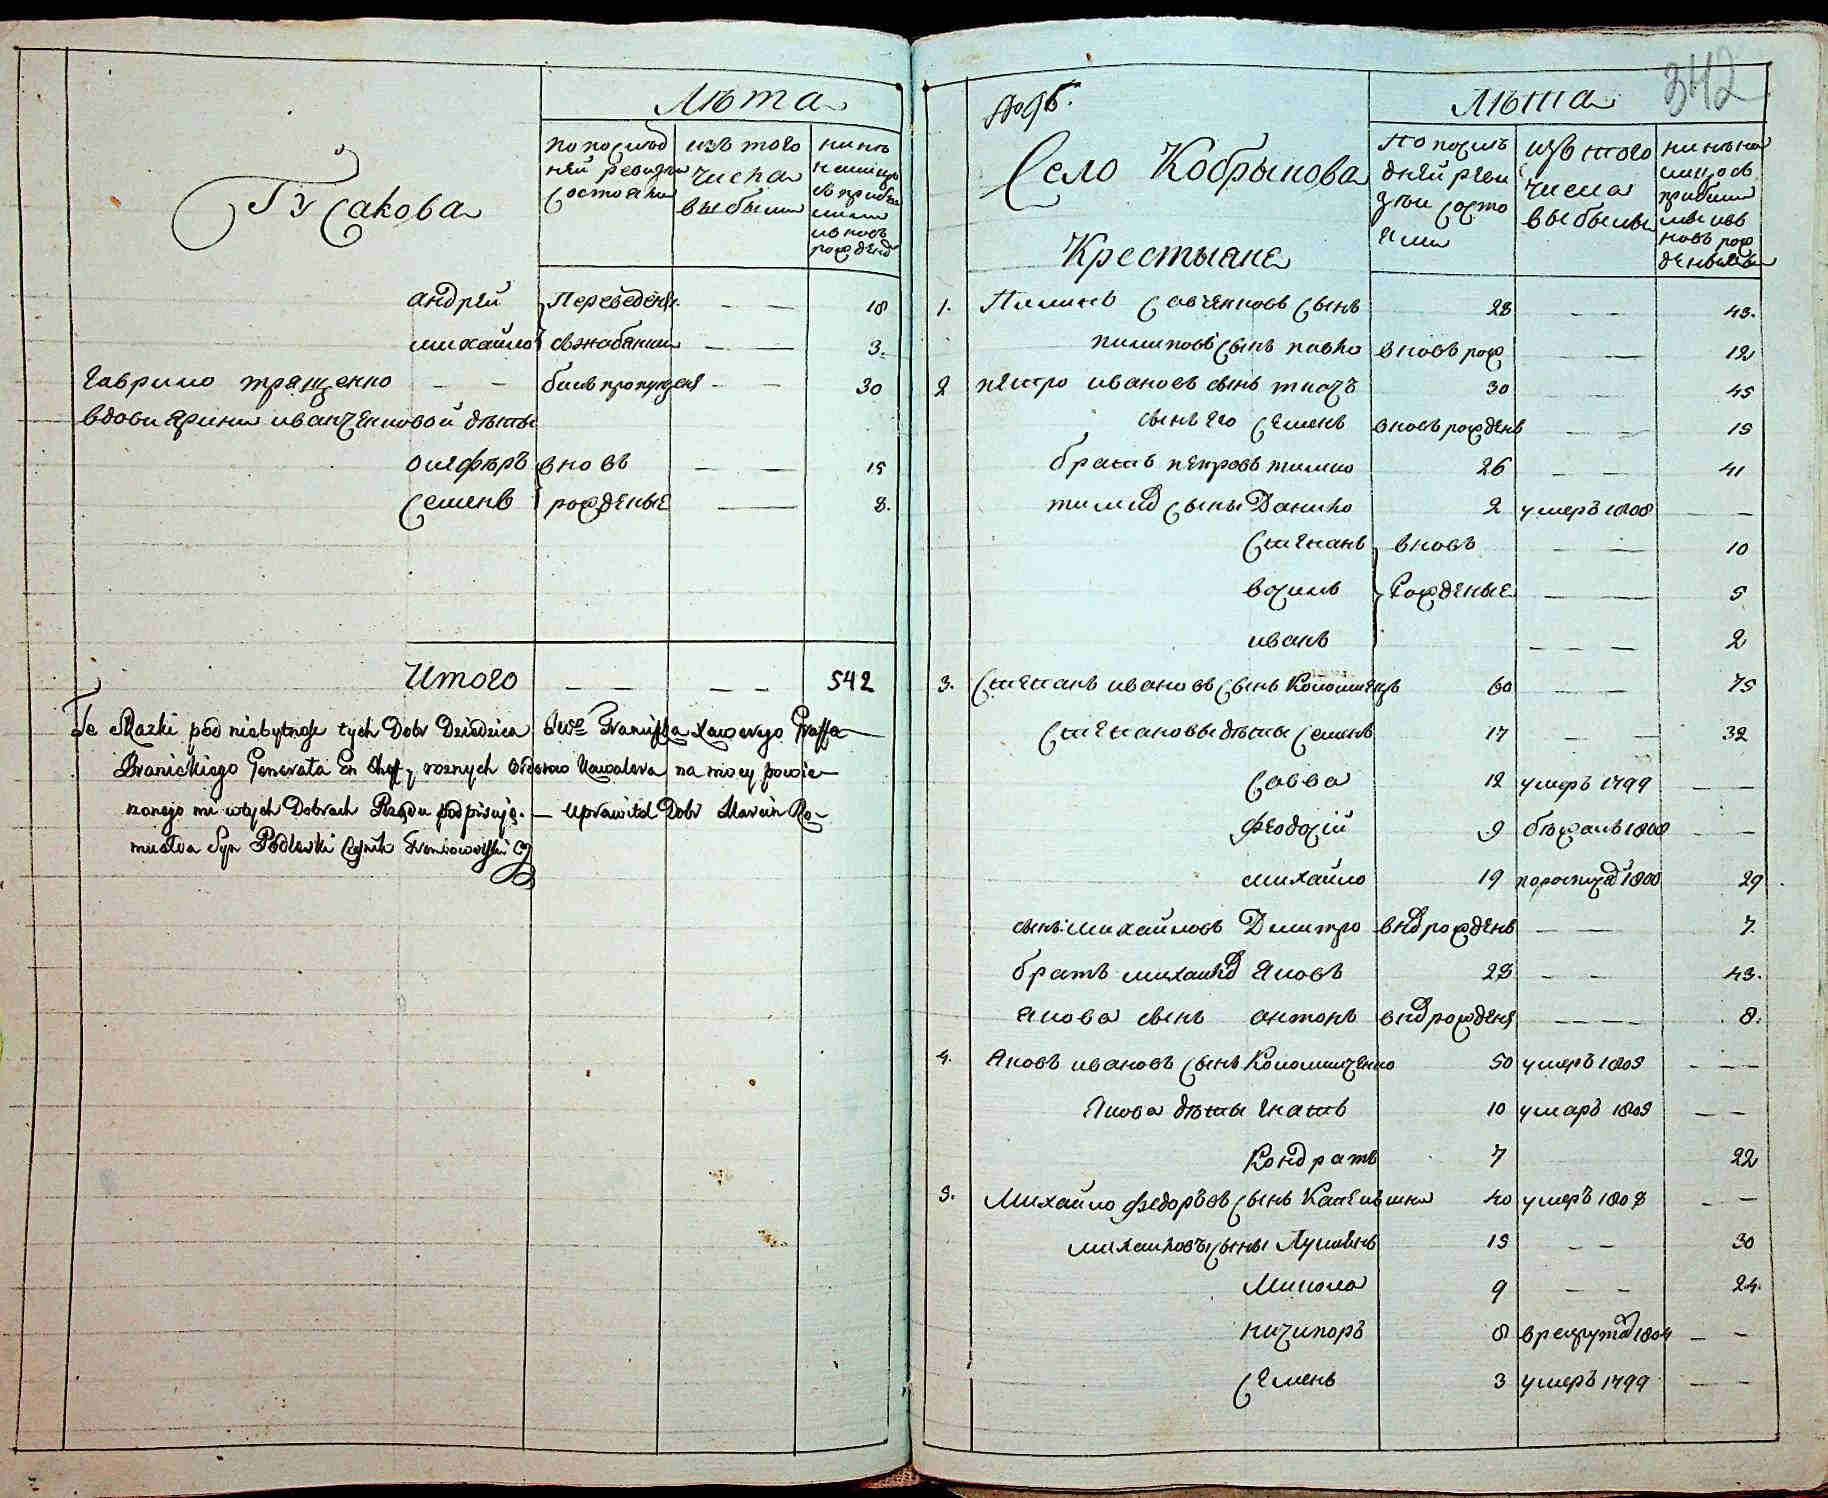 Лѣта
Гусакова
по послѣд
ней ревизіи
состояли
изъ того
числа
выбыли
нынѣ
на лицо
съ прибы
лыми
и вновь
рожден
андрей переведен — — 18
михайло изжабянки — — 3.
гаврило трященко — — былъ пропущен — — 30
вдовы Ярины иванченковой дѣты
олефѣръ вновь — — 15
Семенъ рожденые — — 8.
Итого — — — — 542
Te Skazki pod niebytność tych Dobr Dziedzica JWo Franciszka Xawerego Graffa
Branickiego Generała En Cheff y roznych Orderow Kawalera na mocy powie-
rzonego mi w tych Dobrach Rządu podpisuję. — Uprawitel Dobr Marcin Ro-
mualda Syn Podlewski
342
№ 96.
Лѣта
Село Кобрынова
Крестьяне
по послѣ
дней реви
зіи состо
яли
изъ того
числа
выбыли
нынѣ на
лицо съ
прибы
лы и въ
новь рож
деныи
1. Пилипъ Савченковъ Сынъ 28 — — 43.
пилиповъ Сынъ павло вновь рож — — 12
2 петро ивановъ сынъ ткачъ 30 — — 45
сынъ его Семенъ вновь рожденъ — — 15
братъ петровъ тимко 26 — — 41
тимков Сыны Данило 2 умеръ 1808 — —
Степанъ вновь — — 10
василь рожденые — — 5
иванъ — — — 2
3. Степанъ ивановъ Сынъ Коломіецъ 60 — — 75
Степановы дѣты Семенъ 17 — — 32
Савва 12 умеръ 1799 — —
Феодосій 9 бѣжалъ 1808 — —
михайло 19 1800 29
сынъ михайловъ Дмитро внов рожденъ — — 7.
братъ михайлов Яковъ 28 — — 43.
Якова сынъ антонъ внов рожден — — 8.
4. Яковъ ивановъ Сынъ Коломійченко 50 умеръ 1805 — —
Якова дѣты Гнатъ 10 умаръ 1805 — —
Кондратъ 7 22
5. Михайло федоровъ Сынъ 40 умеръ 1808 — —
михайловы сыны Лукіянъ 15 — — 30
Микола 9 — — 24.
ничипоръ 8 в рекрута 1804 — —
Семенъ 3 умеръ 1799 — —